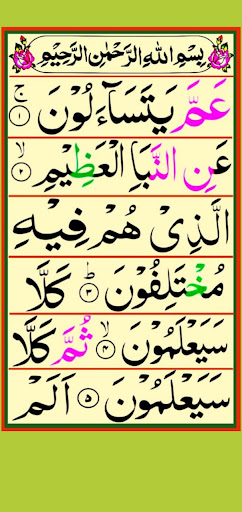 بِسْمِ اللهِ الرَّحْمٰنِ الرَّحِيْمِ
عَمَّ يَتَسَآءَلُوْنَ ۚ ﴿۱﴾
عَنِ النَّبَاِ الْعَظِيْمِ ۙ ﴿۲﴾
الَّذِىْ هُمْ فِيْهِ
مُخْتَلِفُوْنَ ؕ ﴿۳﴾ كَلَّا
سَيَعْلَمُوْنَ ۙ ﴿۴﴾ ثُمَّ كَلَّا
سَيَعْلَمُوْنَ ﴿۵﴾ اَلَمْ